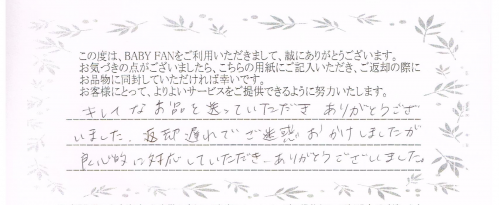 この度は、BABY FANをご利用いただきまして、誠にありがとうございます。
お気づきの点がございましたら、こちらの用紙にご記入いただき、ご返却の際に
お品物に同封していただければ幸いです。
お客様にとって、よりよいサービスをご提供できるように努力いたします。
キレイなお品を送っていただき ありがとうござ
いました。返却遅れで ご迷惑おかけしましたが
良心的に対応していただき、ありがとうございました。